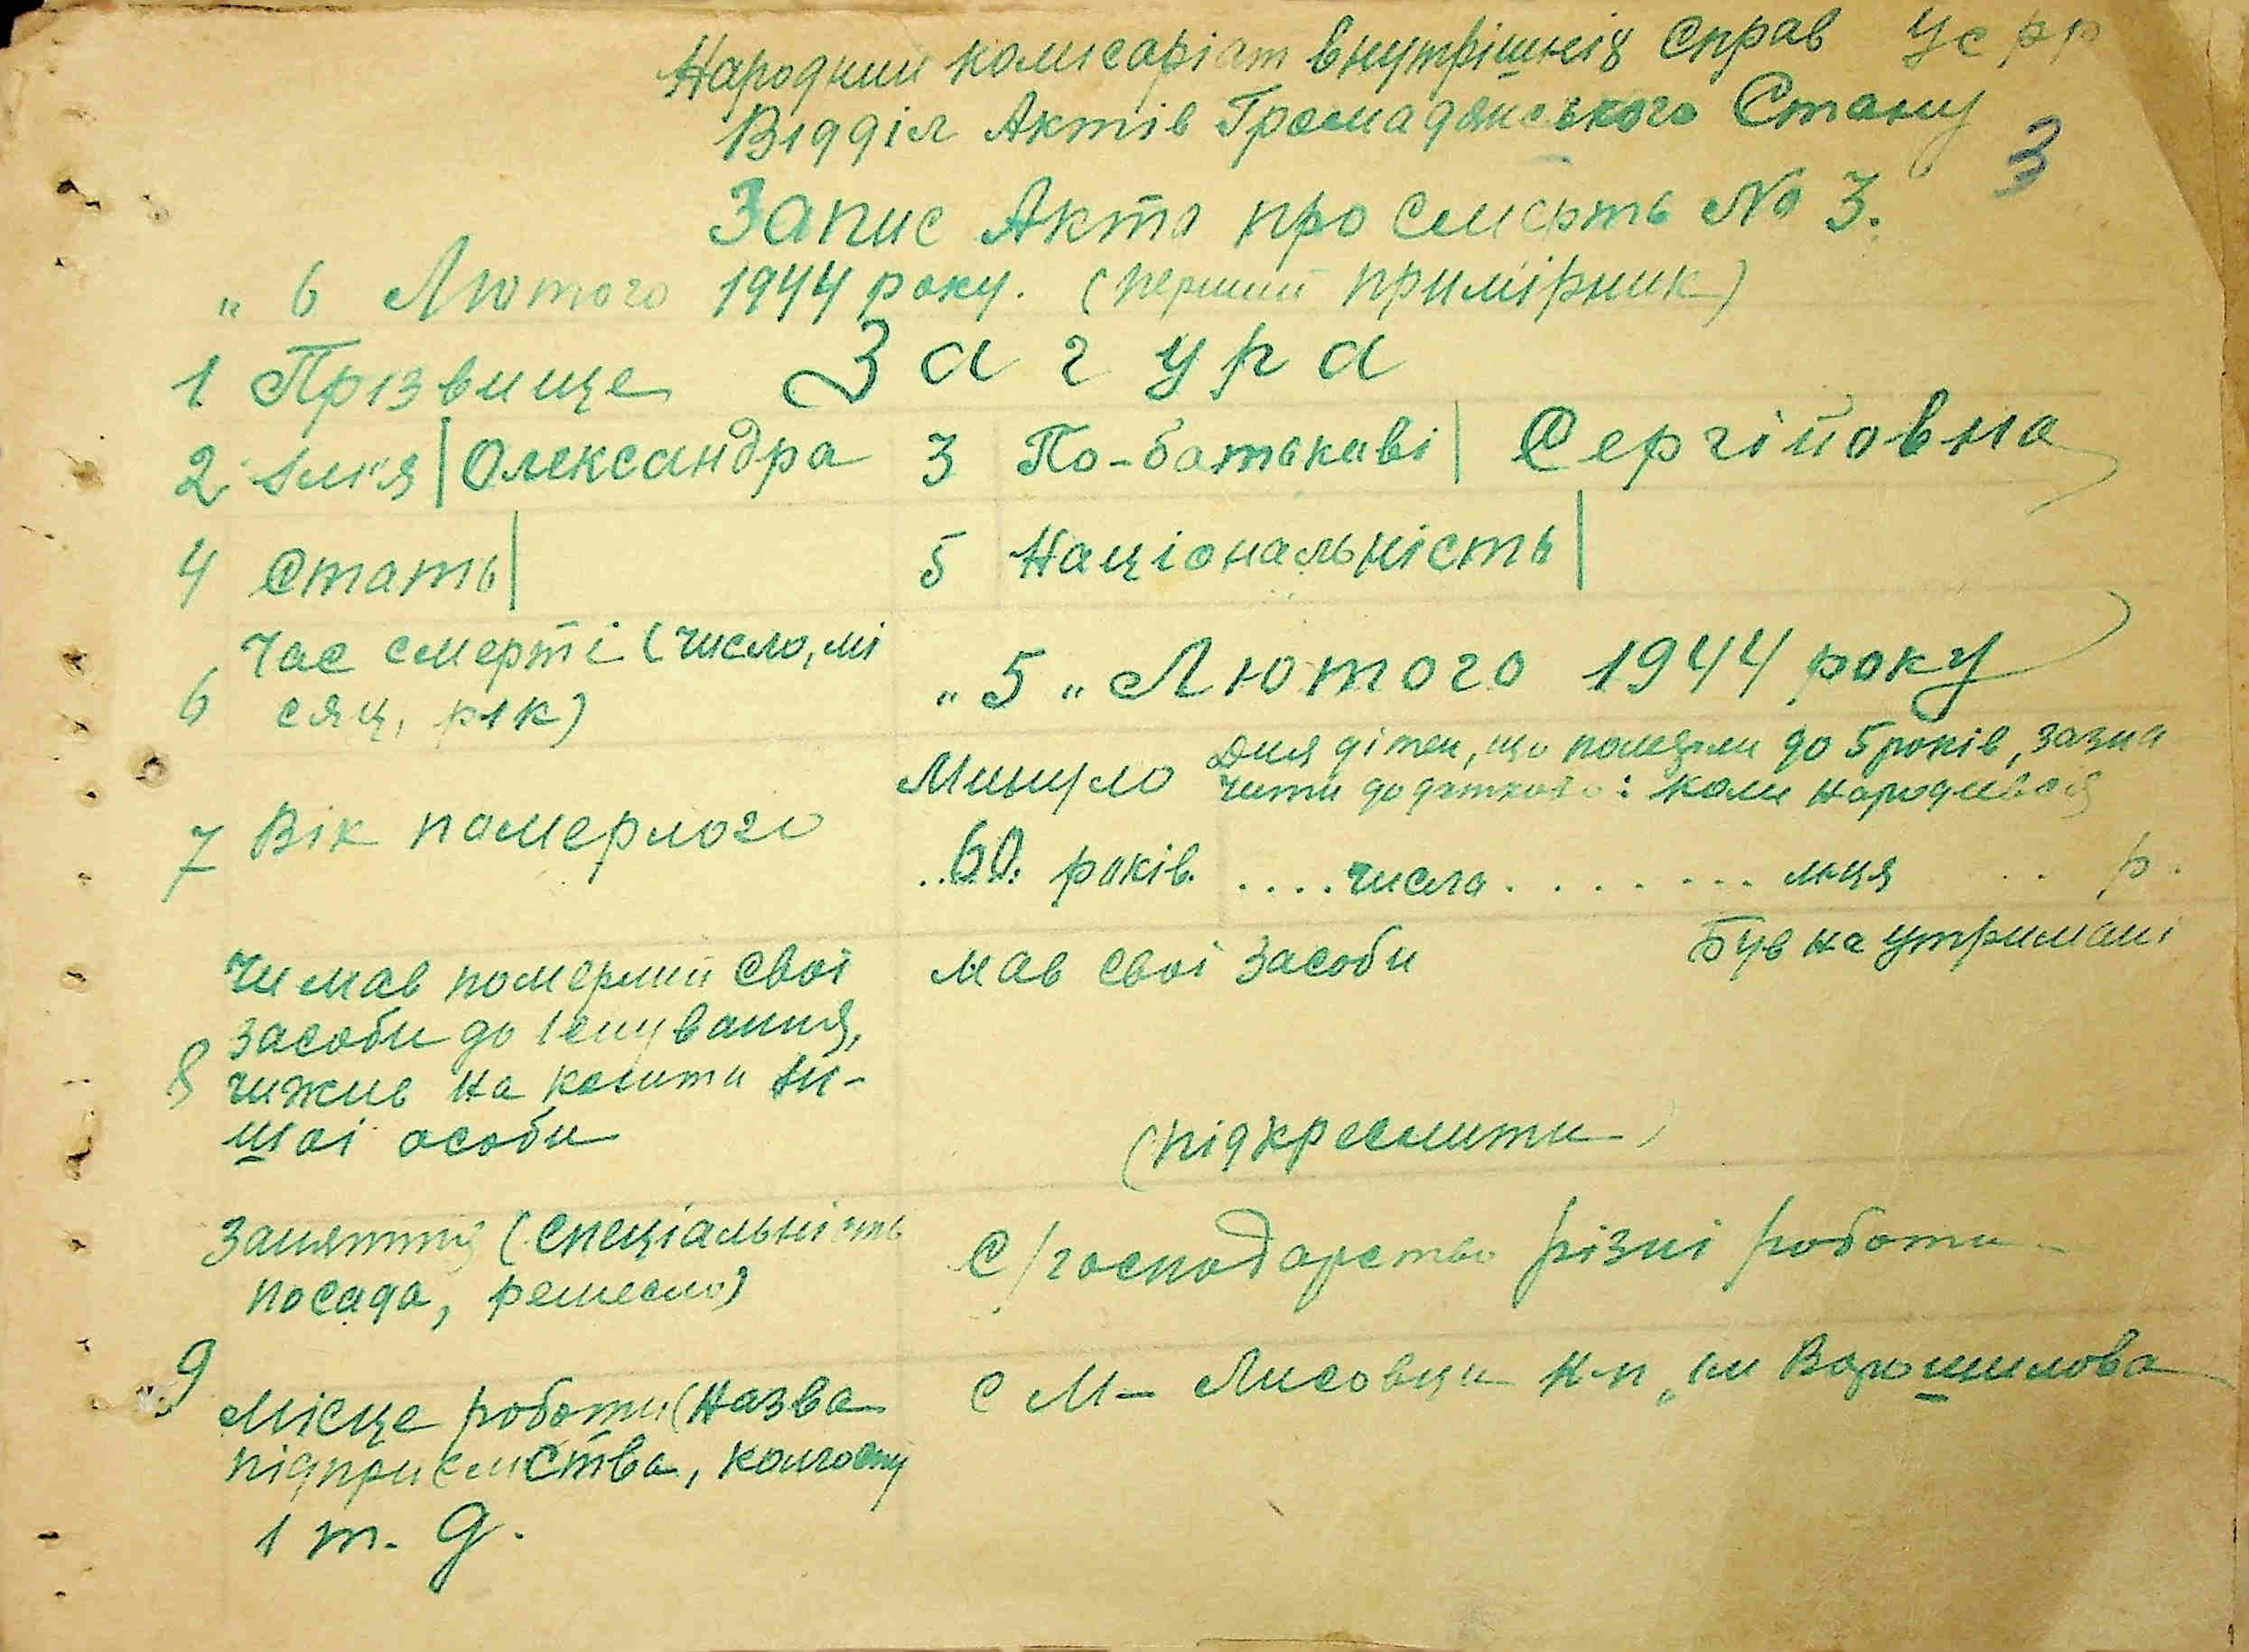 Народний комісаріат внутрішніх Справ УСРР
Відділ Актів Громадянського Стану
3
Запис Акта про смерть № 3.
„ 6 Лютого 1944 року. (перший примірник)
1 Прізвище Загура
2 Імя | Олександра 3 По-батькові | Сергійовна
4 Стать | 5 Національність |
6 Час смерті (число, мі
сяц, рік) „5„ Лютого 1944 року
7 Вік померлого Минуло Для дітей, що померли до 5 років, зазна
чити додатково: коли народився
..60.. років. ....числа........ м-ця .. р.
8 Чи мав померший свої мав свої засоби Був на утримані
засоби до існування,
чи жив на кошти ін-
шоі особи (підкреслити)
9 Заняття (спеціальність С/господарство різні роботи
посада, ремесло)
Місце роботи (назва С М- Лисовци к-п „ім Ворошилова
підприємства, колгоспу
і т. д.